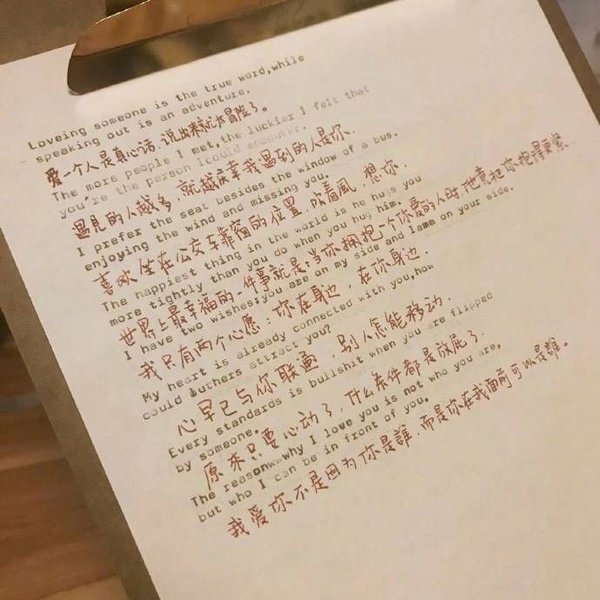 Loveing someone is the true word,while
speaking out is an adventure.
爱一个人是真心话,说出来就是大冒险了。
The more people I met,the luckier I felt that
you're the person I could encounter.
遇見的人越多,就越庆幸我遇到的人是你.
I prefer the seat besides the window of a bus.
enjoying the wind and missing you.
喜欢坐在公交车靠窗的位置,吹着風,想你.
The happiest thing in the world is he hugs you
more tightly than you do when you hug him.
世界上最幸福的一件事就是:当你拥抱一个你爱的人时,他竟把你抱得更紧.
I have two wishes:you are on my side and Iamm on your side.
我只有两个心愿:你在身边,在你身边.
My heart is already connected with you,how
could outhers attract you?
心早已与你联通,别人怎能移动.
Every standards is bullshit when you are flipped
by someone.
原来只要心动了,什么条件都是放屁了.
The reasonwwwhy I love you is not who you are,
but who I can be in front of you.
我爱你不是因为你是誰,而是你在我面前可以是誰.